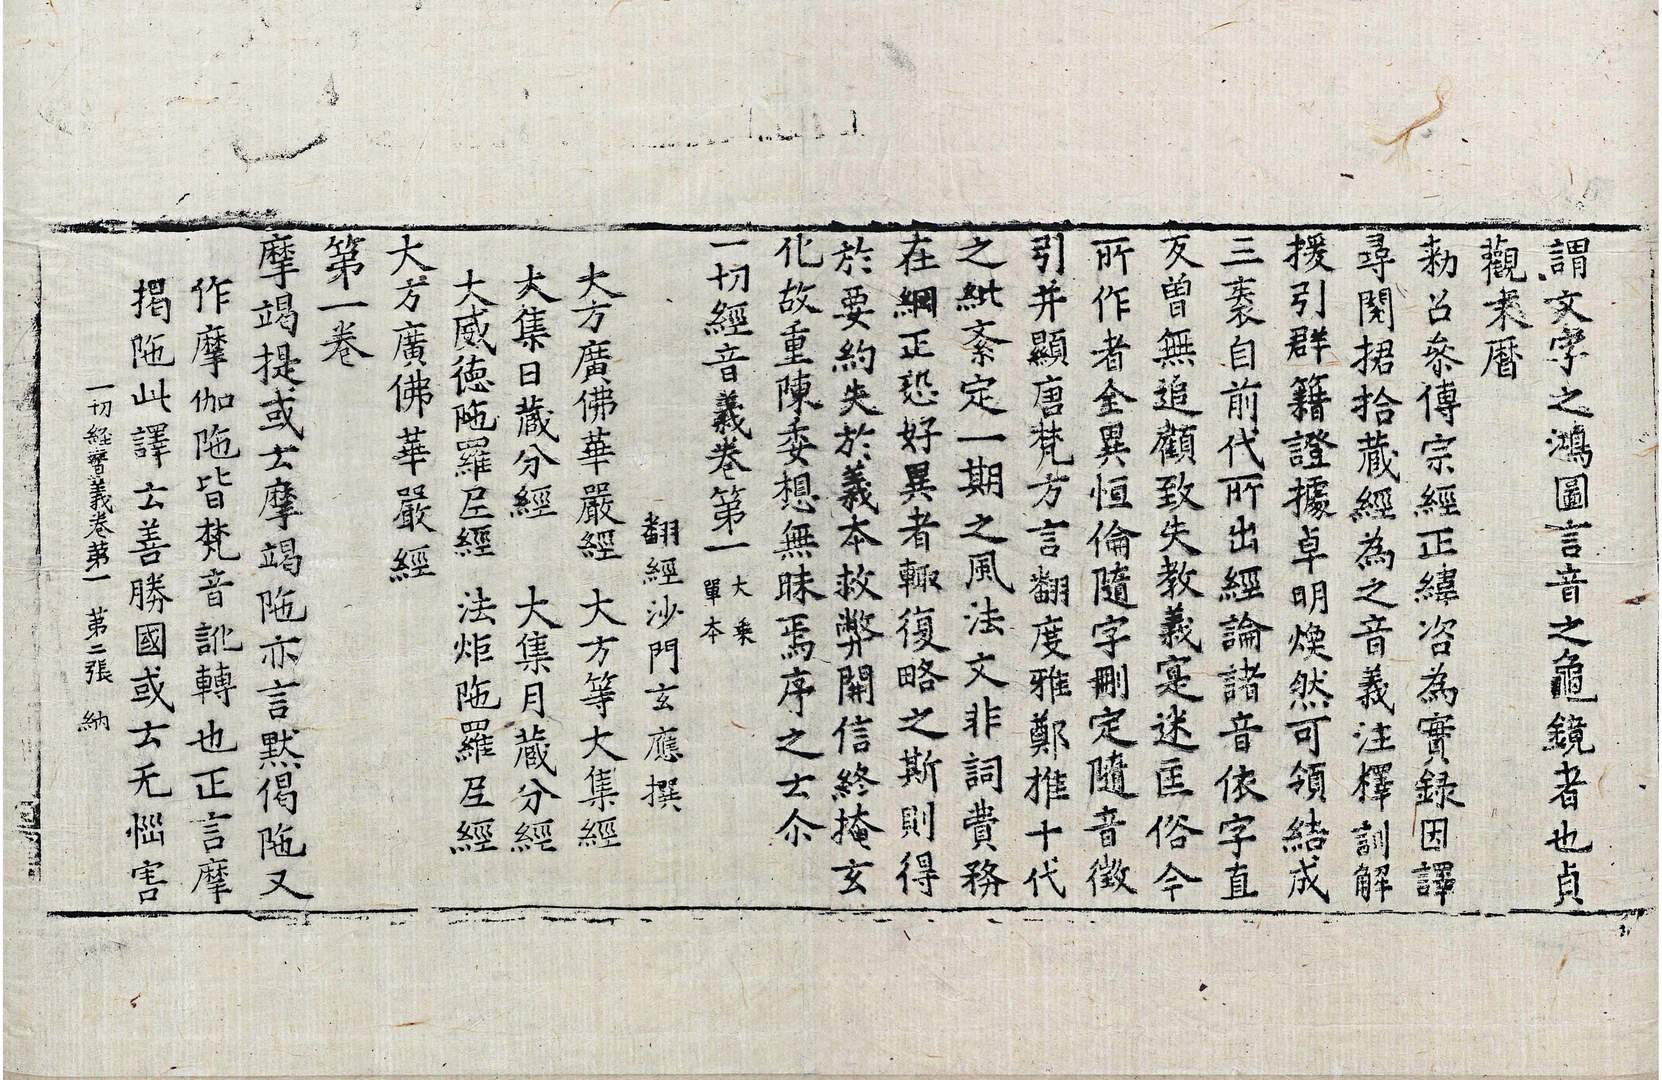 謂文字之鴻圖言音之龜鏡者也貞
觀末曆
勅召叅傳宗經正緯咨為實録因譯
尋閱捃拾藏經為之音義注釋訓解
援引群籍證據卓明煥然可領結成
三袠自前代所出經論諸音依字直
反曾無追顧致失教義寔迷匡俗今
所作者全異恒倫隨字刪定隨音徵
引并顯唐梵方言翻度雅鄭推十代
之紕紊定一期之風法文非詞費務
在綱正恐好異者輙復略之斯則得
於要約失於義本救弊開信終掩玄
化故重陳委想無昧焉序之士尒
一切經音義卷第一 大乘單本
翻經沙門玄應撰
大方廣佛華嚴經 大方等大集經
大集日藏分經 大集月藏分經
大威德陁羅尼經 法炬陁羅尼經
大方廣佛華嚴經
第一卷
摩竭提或云摩竭陁亦言默偈陁又
作摩伽陁皆梵音訛轉也正言摩
揭陁此譯云善勝國或云无惱害
一切経音義卷第一 第二張 納